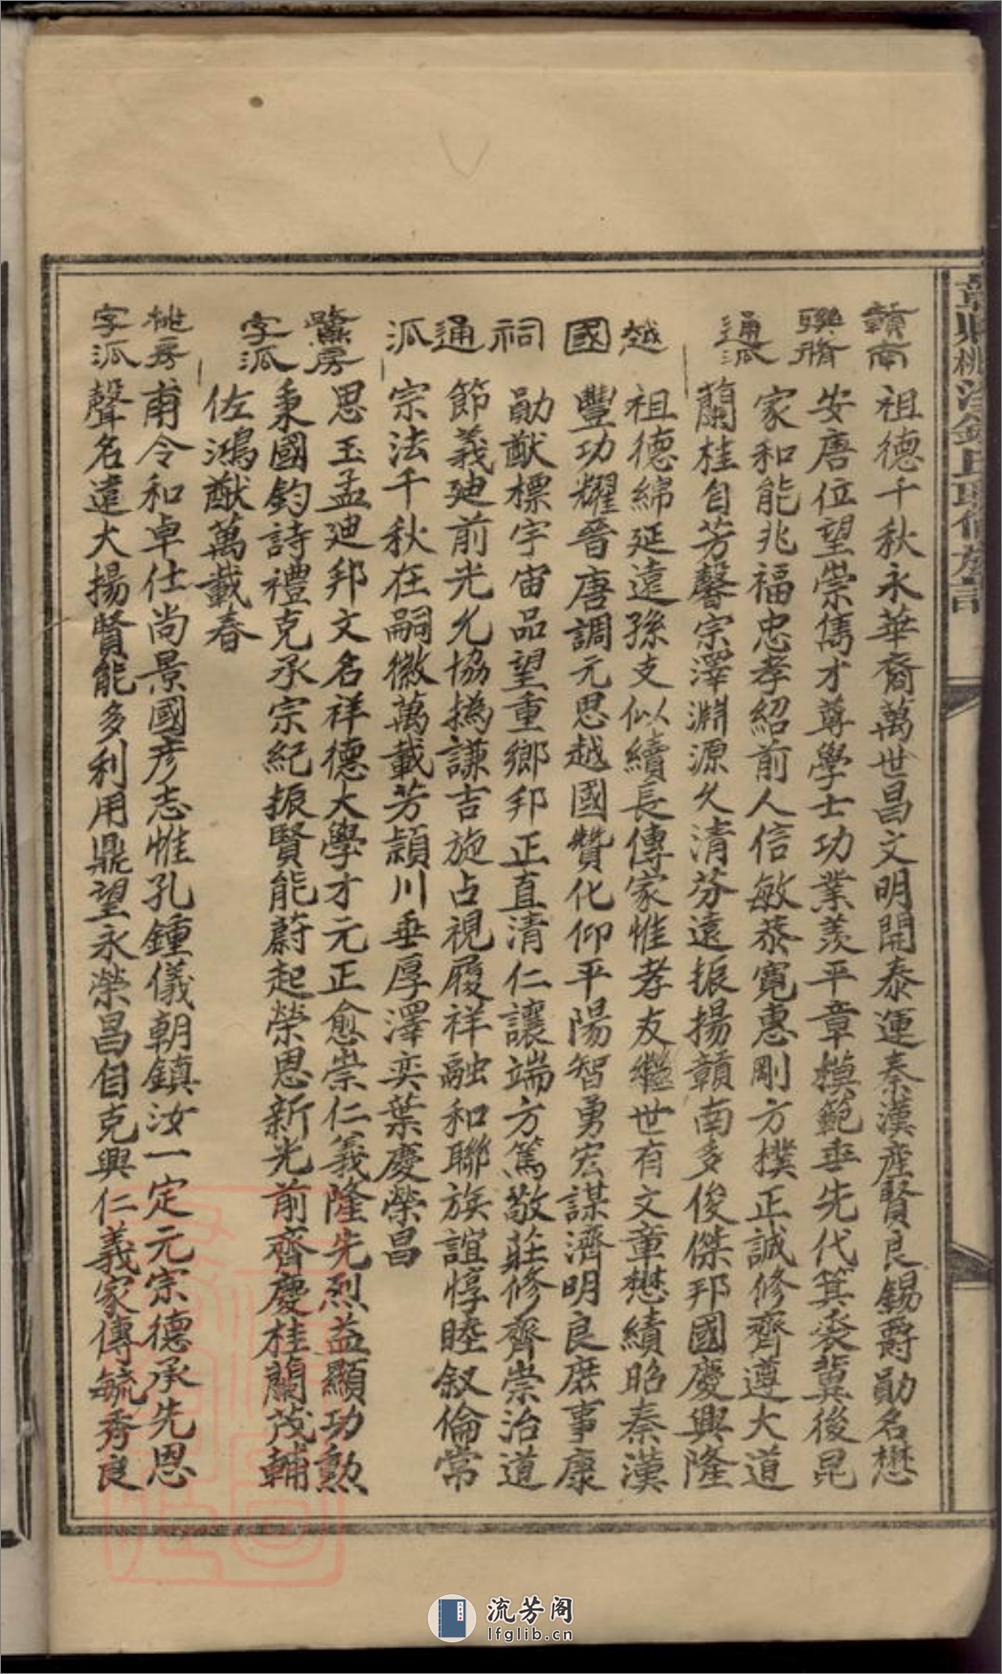 贛南
聯脩
通派
祖德千秋永華裔萬世昌文明開泰運秦漢產賢良錫爵勛名懋
安唐位望崇雋才尊學士功業羨平章模範垂先代箕裘冀後昆
家和能兆福忠孝紹前人信敏恭寬惠剛方樸正誠修齊遵大道
蘭桂自芳馨宗澤淵源久清芬遠振揚贛南多俊傑邦國慶興隆
越國祠通派
祖德綿延遠孫支似續長傳家惟孝友繼世有文章懋績昭秦漢
豐功耀晉唐調元思越國贊化仰平陽智勇宏謀濟明良庶事康
勛猷標宇宙品望重鄉邦正直清仁讓端方篤敬莊修齊崇治道
節義廸前光允協撝謙吉旋占視履祥融和聯族誼惇睦叙倫常
宗法千秋在嗣徽萬載芳潁川垂厚澤奕葉慶榮昌
房
字派
思玉孟廸邦文名祥德大學才元正愈崇仁義隆先烈益顯功勲
秉國鈞詩禮克承宗紀振賢能蔚起榮恩新光前齊慶桂蘭茂輔
佐鴻猷萬載春
桃房
字派
甫令和卓仕尚景國彦志惟孔鍾儀朝鎮汝一定元宗德承先恩
聲名遠大揚賢能多利用鼎望永榮昌自克興仁義家傳毓秀良
流芳阁
lfglib.cn